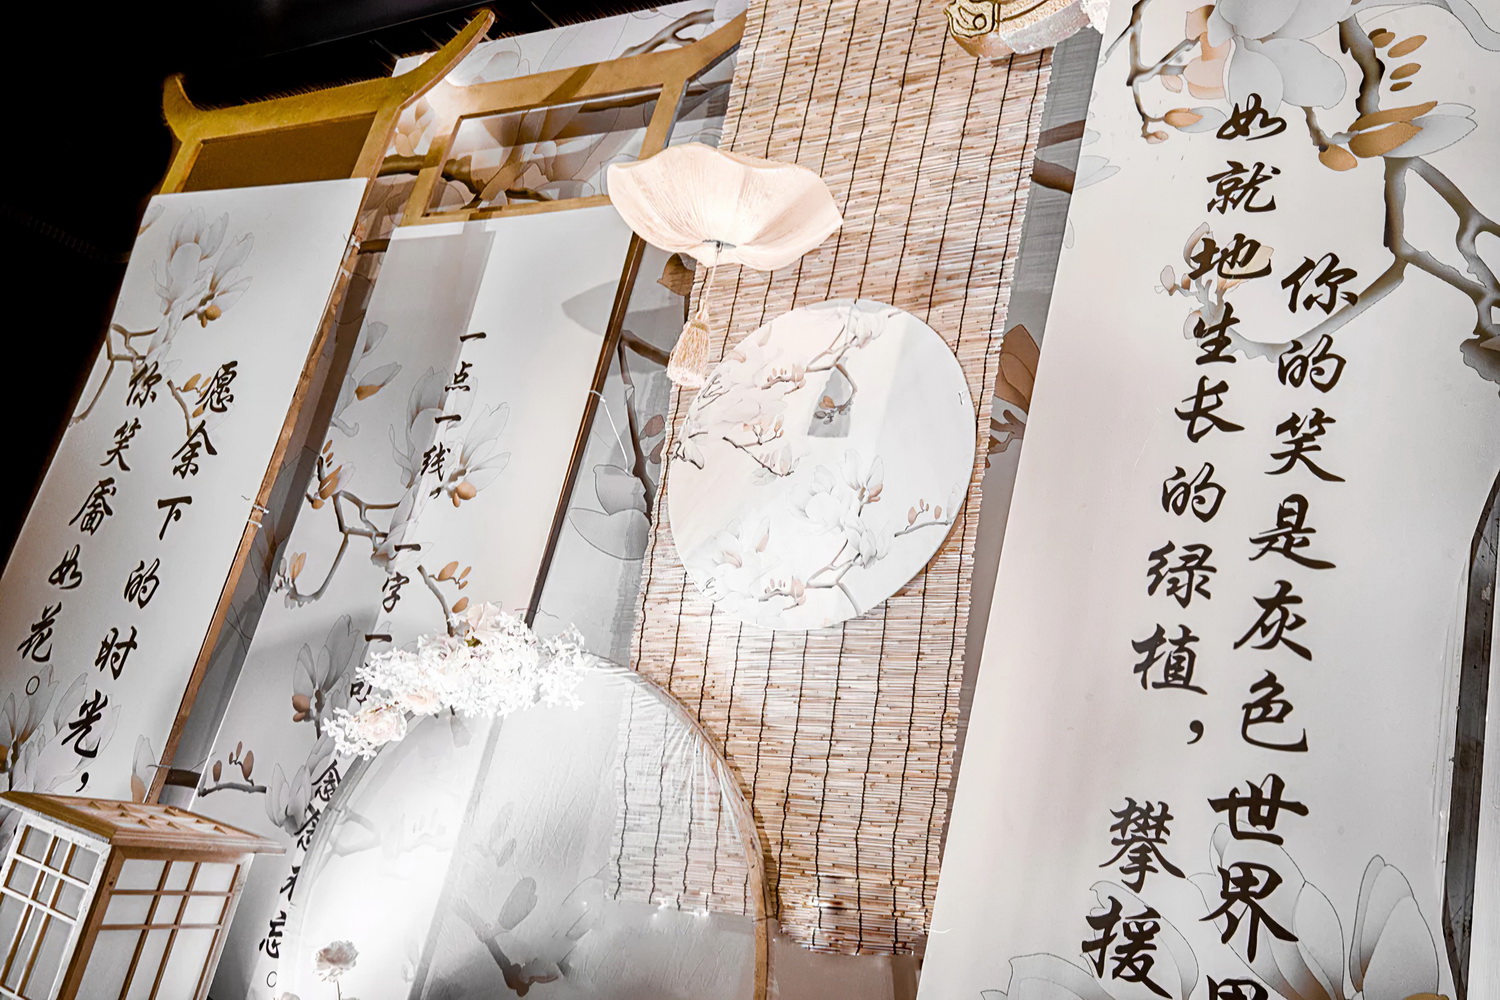 你的笑是灰色世界
如就地生长的绿植，攀援
一点一线，一字一念念不忘。
愿余下的时光，
你笑靥如花。